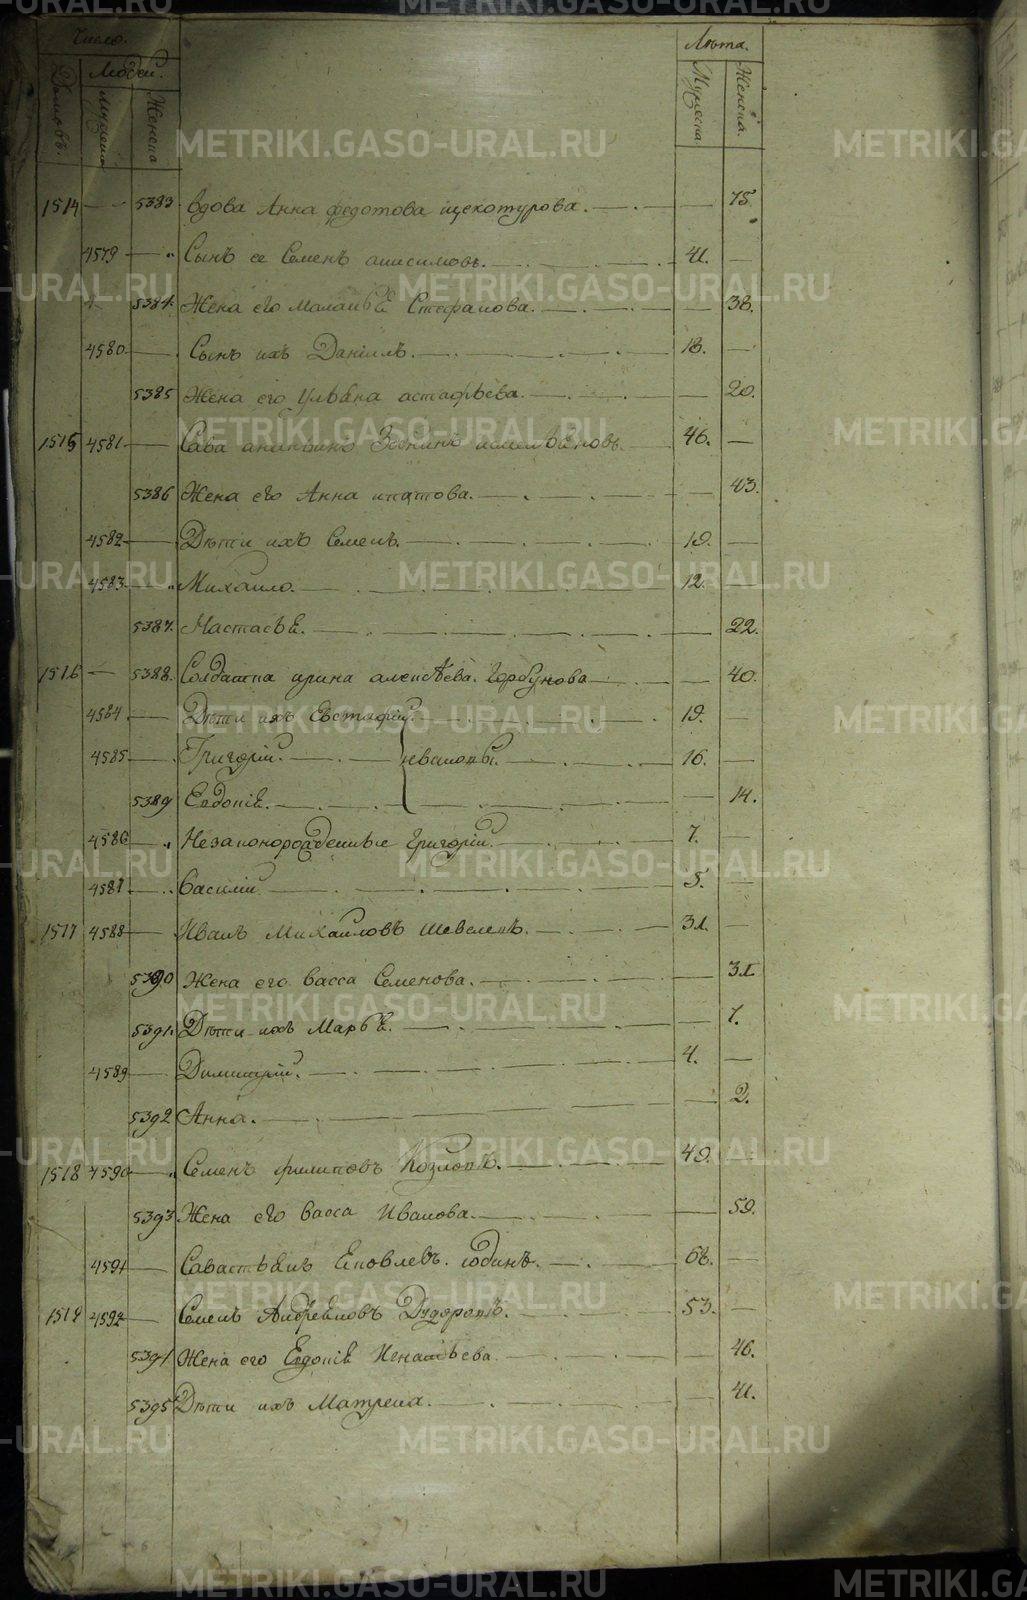 Число.
Лѣта.
Домовъ.
Людей.
Мужеска
Женска
Мужеска
Женска.
1514 — 5383. вдова Анна федотова щекотурова. — 75.
4579 — Сынъ ее Семенъ анисимовъ. 41. —
5384. Жена его Маланьѣ Стефанова. — 38.
4580 — Сынъ ихъ Данiилъ. 18. —
5385 Жена его Ульяна астафьева. — 20.
1515 4581 — Сава 46. —
5386 Жена его Анна ипатова. — 43.
4582 — Дѣти ихъ Семенъ. 19. —
4583. — Михаило. 12. —
5387. Настасьѣ. — 22.
1516 — 5388. Солдатка ирина алексѣева. Горбунова — 40.
4584. — Дѣти ихъ Евстафiй. 19. —
4585 — Григорiй. ивановы. 16. —
5389 Евдокiѣ. — 14.
4586 — Незаконорожденные григорiй. 7. —
4587 — Василiй. 5. —
1517 4588 — Иванъ Михаиловъ шевелевъ. 31. —
5390 Жена его васса Семенова. — 31
5391. Дѣти ихъ Марѳѣ. — 7.
4589 — Димитрiй. 4. —
5392 Анна. — 2.
1518 4590 — Семенъ филиповъ Козловъ. 49. —
5393 Жена его васса Иванова. — 59.
4591 — Савастьянъ Яковлевъ. юдинъ. 68. —
1519 4592 — Семенъ Андреяновъ 53. —
5394 Жена его Евдокiѣ Игнатьева — 46.
5395 Дѣти ихъ Матрена. — 41.
METRIKI.GASO-URAL.RU